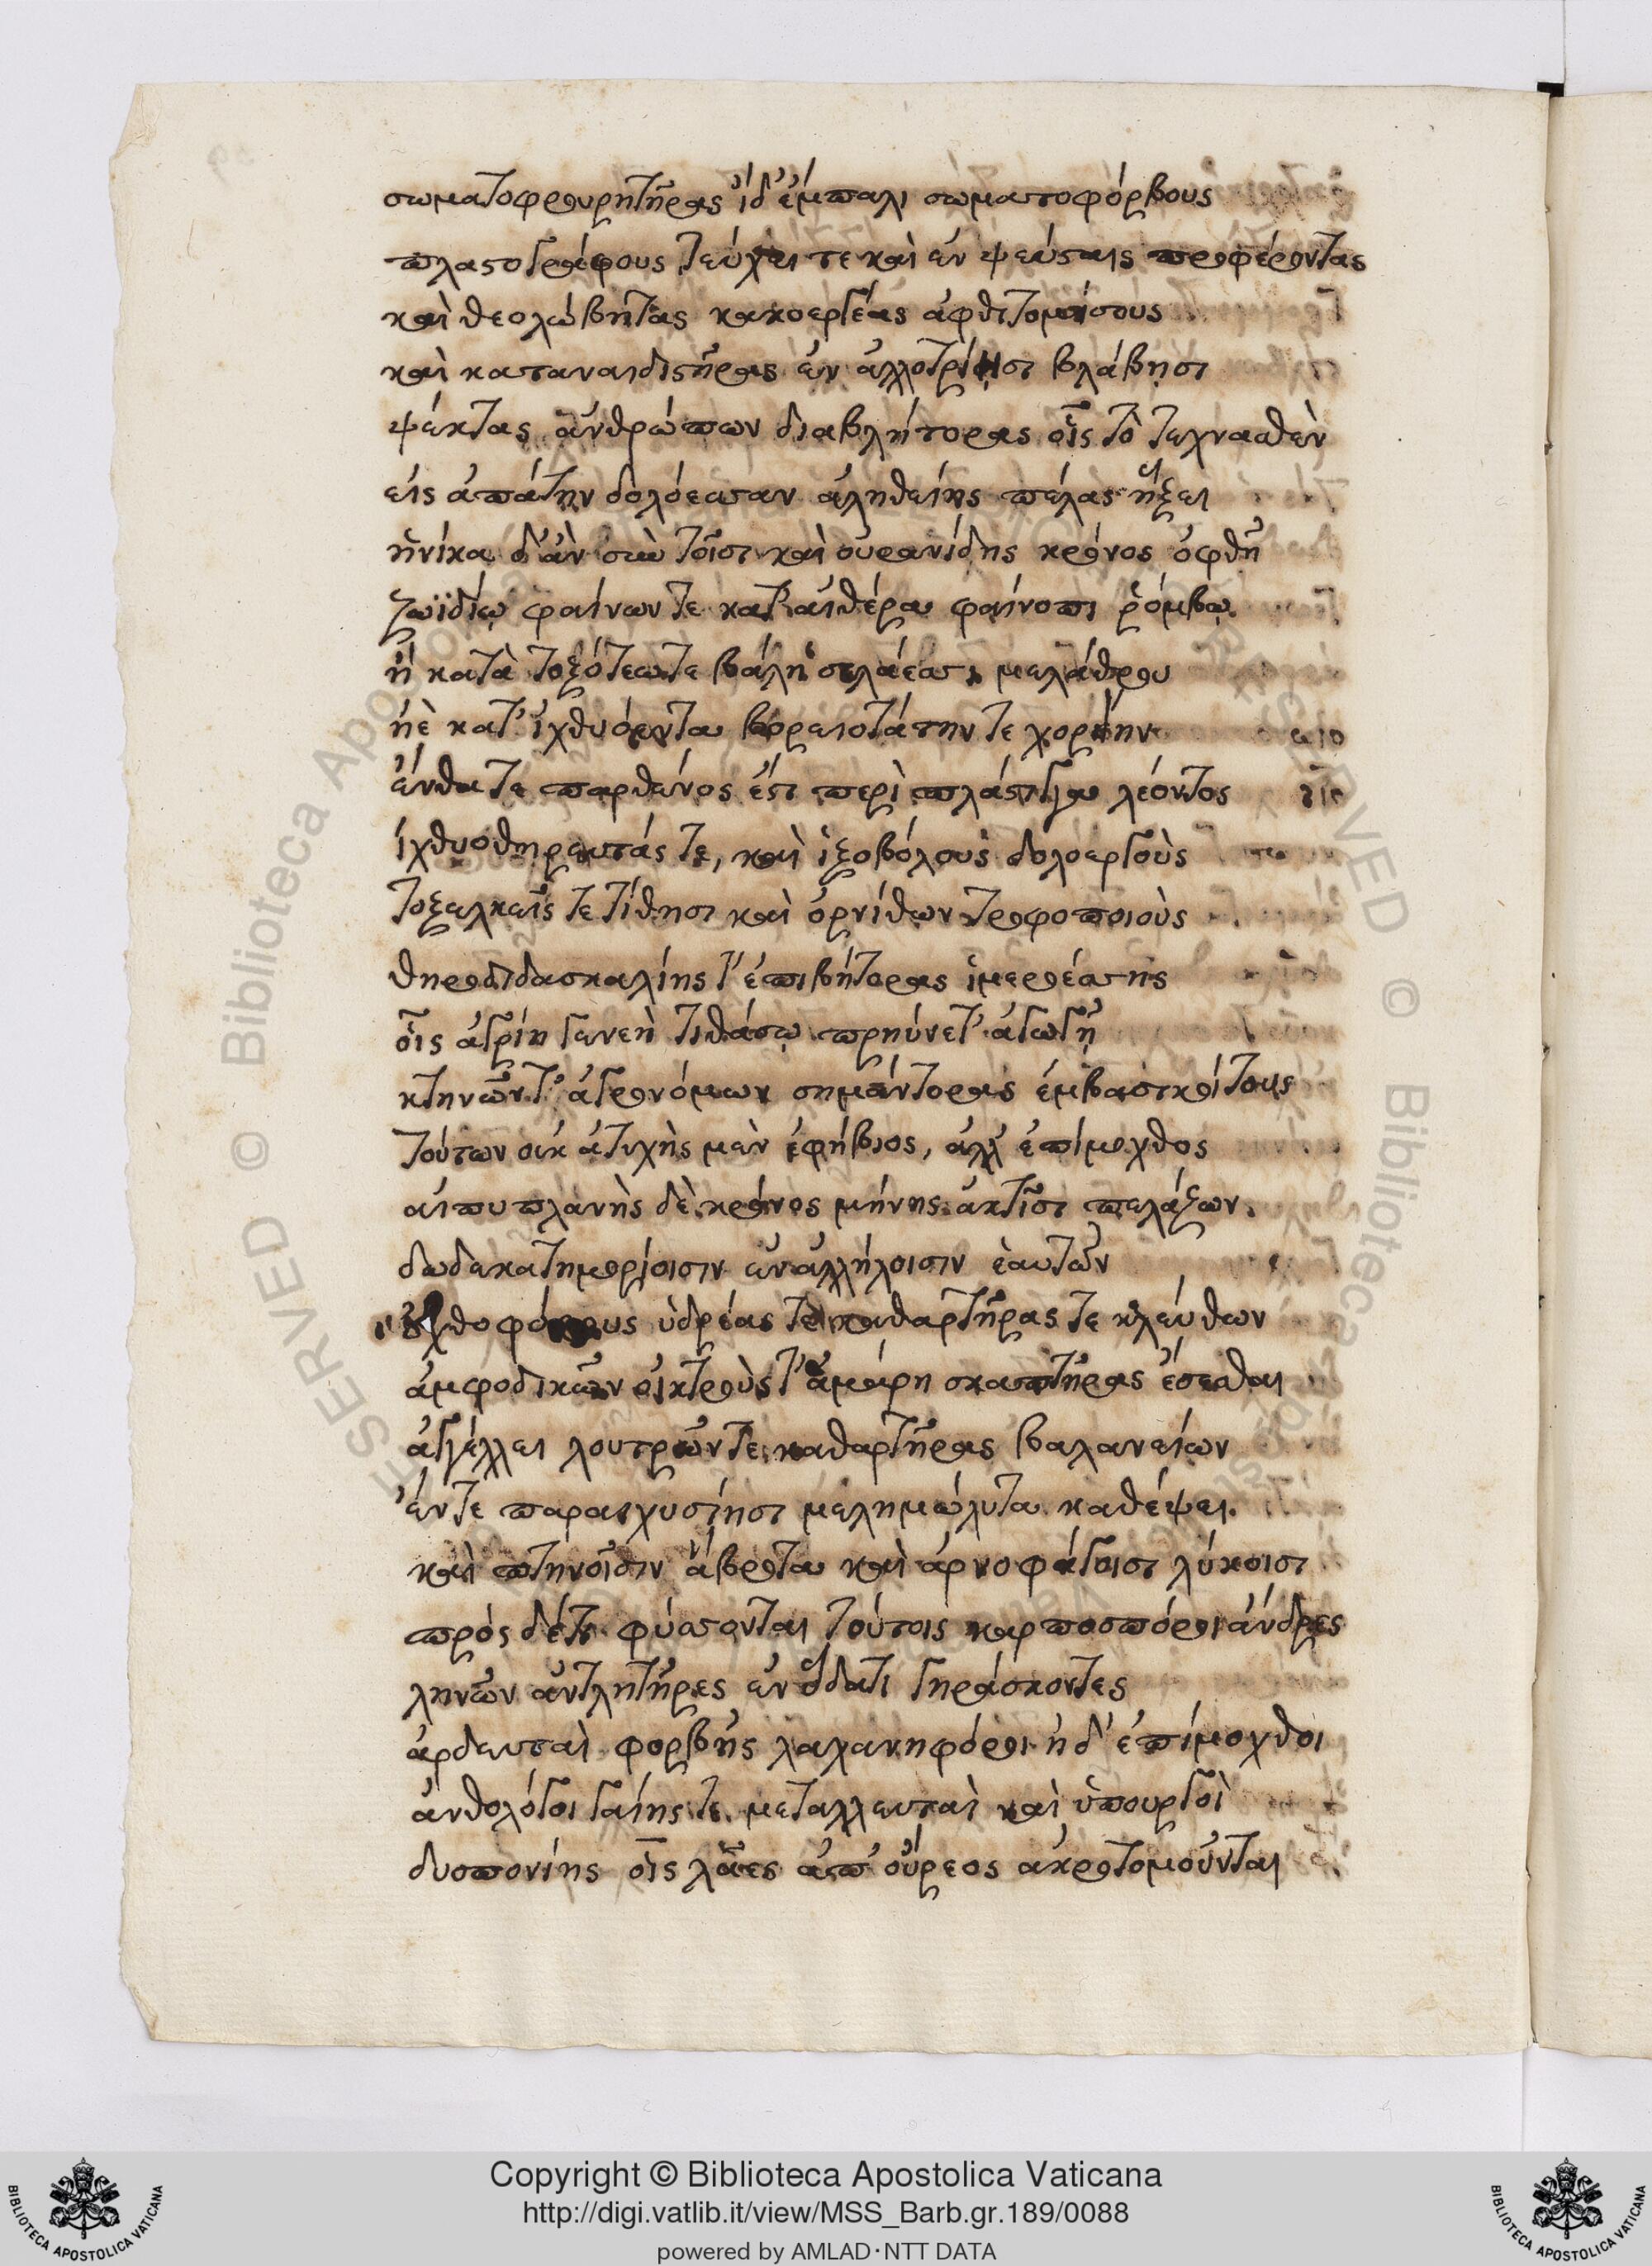 σωματοφρουρητῆρας ἰδ' ἔμπαλι σωματοφόρβους
πλαστογράφους τεύχει τε καὶ ἐν ψεύσταις προφέροντας
καὶ θεολώβητας κακοεργέας ἀφθιτομίσους
καὶ καταναιδιστῆρας ἐν ἀλλοτρίησι βλάβησι
ψέκτας ἀνθρώπων διαβλήτορας οἷς τὸ τεχνασθὲν
εἰς ἀπάτην δολόεσσαν ἀληθείης πέλας ἥξει
ἡνίκα δ' ἂν σὺν τοῖσι καὶ οὐρανίδης κρόνος ὀφθῆ
ζωϊδίω φαίνων τε κατ' αἰθέρα φαίνοπι ῥόμβω
ἢ κατὰ τοξότεω τε βάλη σελάεσσι μελάθρου
ἠὲ κατ' ἰχθυόεντα βορειοτάτην τε χορείην
ἔνθα τε παρθένος ἐστι περὶ πλάστιγγα λέοντος
ἰχθυοθηρευτάς τε, καὶ ἰξοβόλους δολοεργοὺς
τοξαλκεῖς τε τίθησι καὶ ὀρνίθων τροφοποιοὺς
θηροδιδασκαλίης τ' ἐπιβήτορας ἱμεροέσσης
οἷς ἀγρίη γενεὴ τιθάσω πρηύνετ' ἀγωγῆ
κτηνῶν τ' ἀγρονόμων σημάντορας ἐμβασικοίτους
τούτων οὐκ ἀτυχὴς μὲν ἐφήβιος, ἀλλ' ἐπίμοχθος
αἰπυπλανὴς δὲ κρόνος μήνης ἀκτῖσι πελάζων.
δωδεκατημορίοισιν ἐν ἀλλήλοισιν ἑαυτῶν
ἀχθοφόρους ὑδρέας τε καθαρτῆρας τε κελεύθων
ἀμφοδικῶν οἰκτροὺς τ' ἀμάρη σκαπτῆρας ἔσεσθαι
ἀγγέλλει λουτρῶν τε καθαρτῆρας βαλανείων
ἔν τε παραιχυσίησι μεληmώλυτα καθέψει.
καὶ πτηνοῖσιν ἄβρωτα καὶ ἀρνοφάγοισι λύκοισι
πρὸς δέ τι φύσονται τούτοις καρποσπόροι ἄνδρες
ληνῶν ἀντλητῆρες ἐν ὕδατι γηράσκοντες
ἀρδευταὶ φορβῆς λαχανηφόροι ἠδ' ἐπίμοχθοι
ἀνθολόγοι γαίης τε μεταλλευταὶ καὶ ὑπουργοὶ
δυσπονίης οἷς λᾶες ἀπ' οὔρεος ἀκροτομοῦνται
Copyright © Biblioteca Apostolica Vaticana
http://digi.vatlib.it/view/MSS_Barb.gr.189/0088
powered by AMLAD·NTT DATA